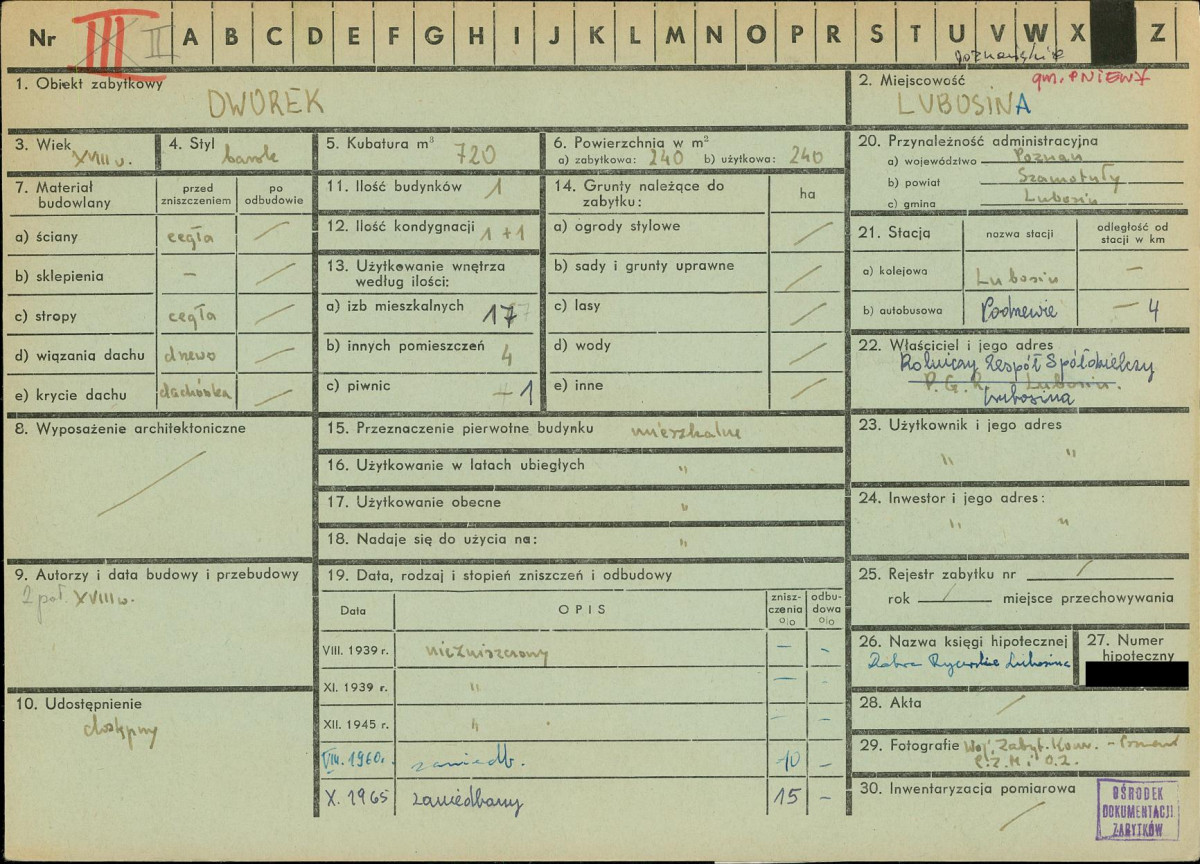 Nr III II A B C D E F G H I J K L M N O P R S T U V W X Z
poznańskie
1. Obiekt zabytkowy
DWOREK
2. Miejscowość gm. PNIEWY
LUBOSINA
3. Wiek XVIII w.
4. Styl barok
5. Kubatura m³ 720
6. Powierzchnia w m²
a) zabytkowa: 240 b) użytkowa: 240
20. Przynależność administracyjna
a) województwo Poznań
b) powiat Szamotuły
c) gmina Lubosin
7. Materiał budowlany
przed zniszczeniem
po odbudowie
a) ściany cegła /
b) sklepienia – /
c) stropy cegła /
d) wiązania dachu drewo /
e) krycie dachu dachówka /
11. Ilość budynków 1
12. Ilość kondygnacji 1+1
13. Użytkowanie wnętrza
według ilości:
a) izb mieszkalnych 17
b) innych pomieszczeń 4
c) piwnic – 1
14. Grunty należące do
zabytku:
ha
a) ogrody stylowe /
b) sady i grunty uprawne /
c) lasy /
d) wody /
e) inne /
21. Stacja
nazwa stacji
odległość od
stacji w km
a) kolejowa Lubosin –
b) autobusowa Podrzewie – 4
22. Właściciel i jego adres
Rolniczy Zespół Spółdzielczy
P. G. R. Lubosin.
Lubosina
8. Wyposażenie architektoniczne
/
15. Przeznaczenie pierwotne budynku mieszkalne
16. Użytkowanie w latach ubiegłych "
17. Użytkowanie obecne "
18. Nadaje się do użycia na: "
23. Użytkownik i jego adres
" "
24. Inwestor i jego adres:
" "
9. Autorzy i data budowy i przebudowy
2 poł. XVIII w.
19. Data, rodzaj i stopień zniszczeń i odbudowy
Data
OPIS
znisz-
czenia
%
odbu-
dowa
%
VIII. 1939 r. niezniszczony – –
XI. 1939 r. " – –
XII. 1945 r. " – –
VIII. 1960 r. zaniedb. 10 –
X. 1965 zaniedbany 15 –
25. Rejestr zabytku nr /
rok / miejsce przechowywania
26. Nazwa księgi hipotecznej
Dobra Rycerskie Lubosina
27. Numer
hipoteczny
10. Udostępnienie
dostępny
28. Akta /
29. Fotografie Woj. Zabyt. Kons. – Poznań
P.Z.M. i O.Z.
30. Inwentaryzacja pomiarowa
/
OŚRODEK
DOKUMENTACJI
ZABYTKÓW